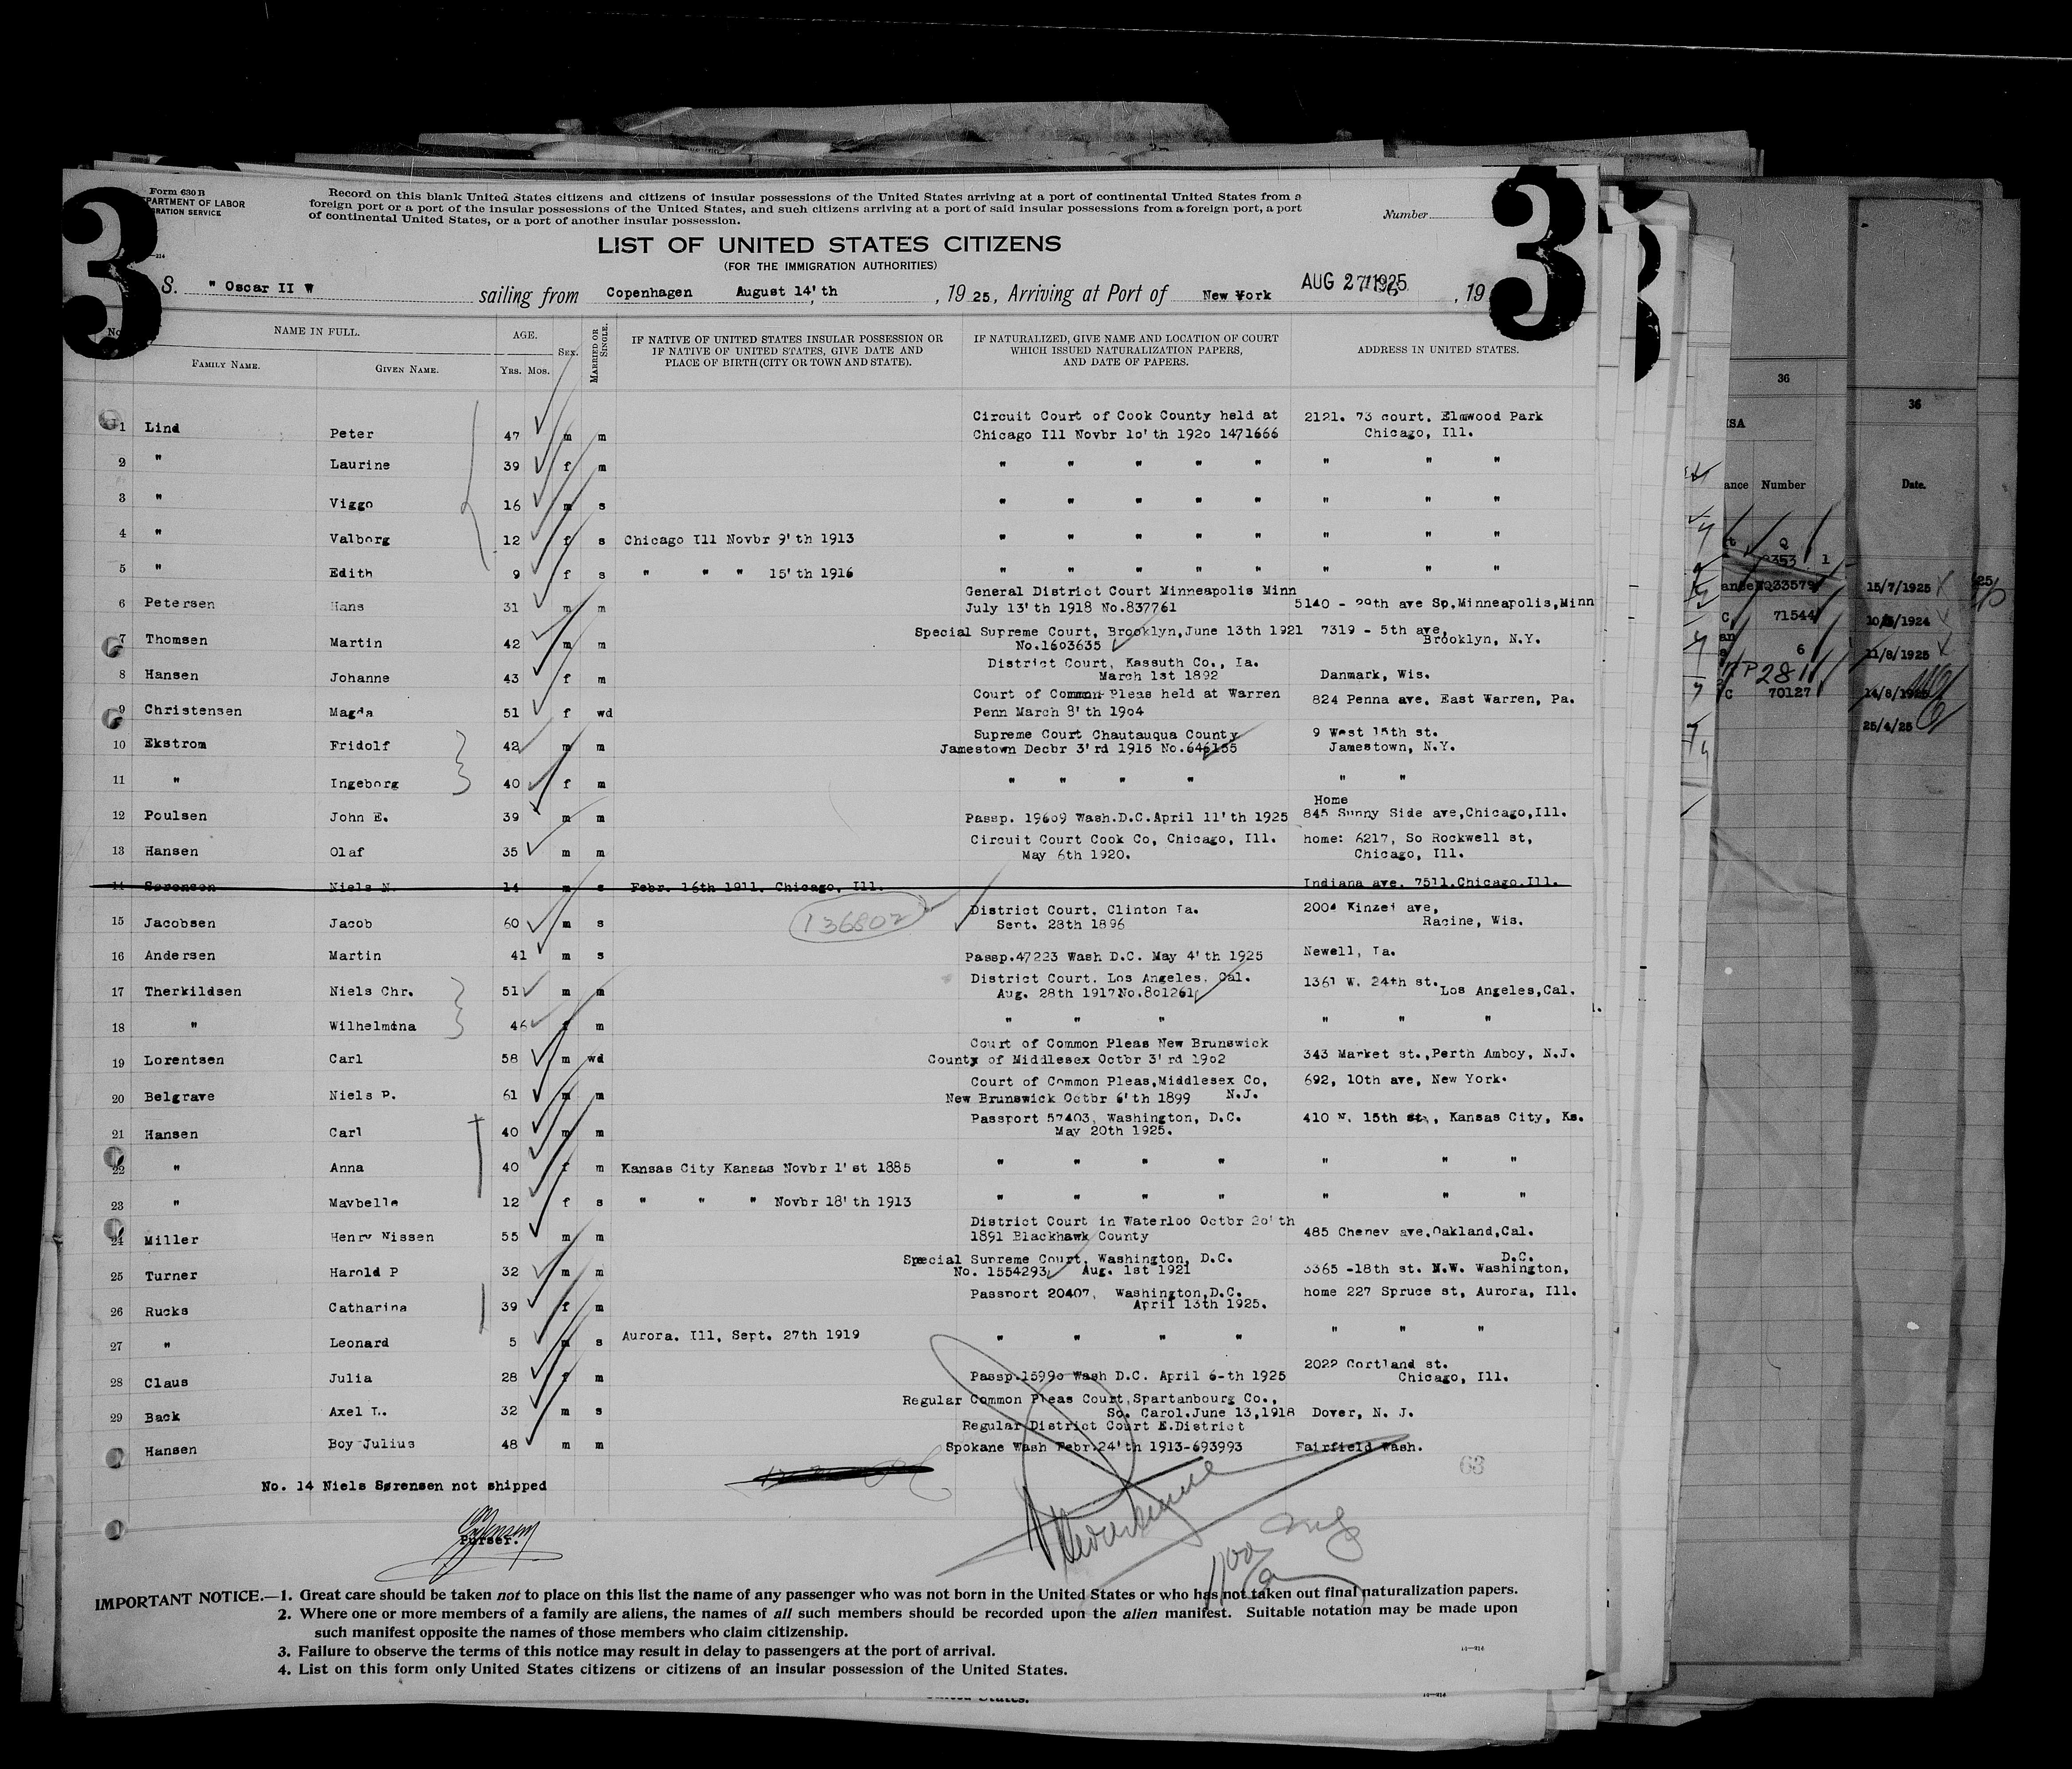 3
3
Form 630 B
DEPARTMENT OF LABOR
IMMIGRATION SERVICE
Record on this blank United States citizens and citizens of insular possessions of the United States arriving at a port of continental United States from a
foreign port or a port of the insular possessions of the United States, and such citizens arriving at a port of said insular possessions from a foreign port, a port
of continental United States, or a port of another insular possession.
Number
LIST OF UNITED STATES CITIZENS
(FOR THE IMMIGRATION AUTHORITIES)
S. " Oscar II " sailing from Copenhagen August 14'th , 19 25, Arriving at Port of New York AUG 27 1925 , 19
No. NAME IN FULL. AGE. SEX. MARRIED OR SINGLE. IF NATIVE OF UNITED STATES INSULAR POSSESSION OR IF NATIVE OF UNITED STATES, GIVE DATE AND PLACE OF BIRTH (CITY OR TOWN AND STATE). IF NATURALIZED, GIVE NAME AND LOCATION OF COURT WHICH ISSUED NATURALIZATION PAPERS, AND DATE OF PAPERS. ADDRESS IN UNITED STATES.
FAMILY NAME. GIVEN NAME. YRS. MOS.
Circuit Court of Cook County held at 2121. 73 court. Elmwood Park
1 Lind Peter 47 m m Chicago Ill Novbr 10'th 1920 1471666 Chicago, Ill.
2 " Laurine 39 f m " " " " " " " "
3 " Viggo 16 m s " " " " " " " "
4 " Valborg 12 f s Chicago Ill Novbr 9'th 1913 " " " " " " " "
5 " Edith 9 f s " " " 15'th 1916 " " " " " " " "
General District Court Minneapolis Minn
6 Petersen Hans 31 m m July 13'th 1918 No.837761 5140 - 29th ave So.Minneapolis,Minn
Special Supreme Court, Brooklyn,June 13th 1921 7319 - 5th ave,
7 Thomsen Martin 42 m m No.1603635 Brooklyn, N.Y.
District Court, Kassuth Co., Ia.
8 Hansen Johanne 43 f m March 1st 1892 Danmark, Wis.
Court of Common Pleas held at Warren
9 Christensen Magda 51 f wd Penn March 8'th 1904 824 Penna ave. East Warren, Pa.
Supreme Court Chautauqua County 9 West 15th st.
10 Ekstrom Fridolf 42 m m Jamestown Decbr 3'rd 1915 No.646155 Jamestown, N.Y.
11 " Ingeborg 40 f m " " " " " "
Home
12 Poulsen John E. 39 m m Passp. 19609 Wash.D.C.April 11'th 1925 845 Sunny Side ave,Chicago,Ill.
Circuit Court Cook Co, Chicago, Ill. home: 6217, So Rockwell st,
13 Hansen Olaf 35 m m May 6th 1920. Chicago, Ill.
14 Sørensen Niels N. 14 m s Febr. 16th 1911. Chicago, Ill. Indiana ave. 7511.Chicago.Ill.
136802
District Court, Clinton Ia. 2004 Kinzei ave,
15 Jacobsen Jacob 60 m s Sept. 28th 1896 Racine, Wis.
16 Andersen Martin 41 m s Passp.47223 Wash D.C. May 4'th 1925 Newell, Ia.
District Court. Los Angeles. Cal. 1361 W. 24th st.
17 Therkildsen Niels Chr. 51 m m Aug. 28th 1917No.801261 Los Angeles,Cal.
18 " Wilhelmina 46 f m " " " " " "
Court of Common Pleas New Brunswick
19 Lorentsen Carl 58 m wd County of Middlesex Octbr 3'rd 1902 343 Market st.,Perth Amboy, N.J.
Court of Common Pleas,Middlesex Co, 692, 10th ave, New York.
20 Belgrave Niels P. 61 m m New Brunswick Octbr 6'th 1899 N.J.
Passport 57403, Washington, D.C. 410 N. 15th st., Kansas City, Ks.
21 Hansen Carl 40 m m May 20th 1925.
22 " Anna 40 f m Kansas City Kansas Novbr 1'st 1885 " " " " " " "
23 " Maybelle 12 f s " " " Novbr 18'th 1913 " " " " " " "
District Court in Waterloo Octbr 20'th
24 Miller Henry Nissen 55 m m 1891 Blackhawk County 485 Cheney ave.Oakland,Cal.
Special Supreme Court, Washington, D.C. D.C.
25 Turner Harold P 32 m m No. 1554293 Aug. 1st 1921 3365 -18th st. N.W. Washington,
Passport 20407, Washington,D.C. home 227 Spruce st, Aurora, Ill.
26 Rucks Catharina 39 f m April 13th 1925.
27 " Leonard 5 m s Aurora. Ill, Sept. 27th 1919 " " " " " " "
2022 Cortland st.
28 Claus Julia 28 f m Passp.15990 Wash D.C. April 6-th 1925 Chicago, Ill.
Regular Common Pleas Court,Spartanbourg Co.,
29 Back Axel T. 32 m s So. Carol.June 13,1918 Dover, N. J.
Regular District Court E.District
Hansen Boy Julius 48 m m Spokane Wash Febr.24'th 1913-693993 Fairfield Wash.
63
No. 14 Niels Sørensen not shipped
Purser.
IMPORTANT NOTICE.—1. Great care should be taken not to place on this list the name of any passenger who was not born in the United States or who has not taken out final naturalization papers.
2. Where one or more members of a family are aliens, the names of all such members should be recorded upon the alien manifest. Suitable notation may be made upon
such manifest opposite the names of those members who claim citizenship.
3. Failure to observe the terms of this notice may result in delay to passengers at the port of arrival.
4. List on this form only United States citizens or citizens of an insular possession of the United States.
36
36
Number
Date.
15/7/1925
71544
6
11/8/1925
281
70127
25/4/25